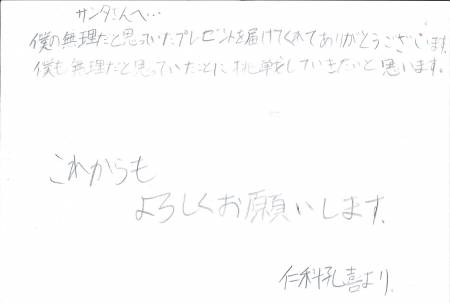 サンタさんへ…
僕の無理だと思っていたプレゼントを届けてくれてありがとうございます。
僕も無理だと思っていたことに挑戦をしていきたいと思います。
これからも
よろしくお願いします。
仁科孔喜より